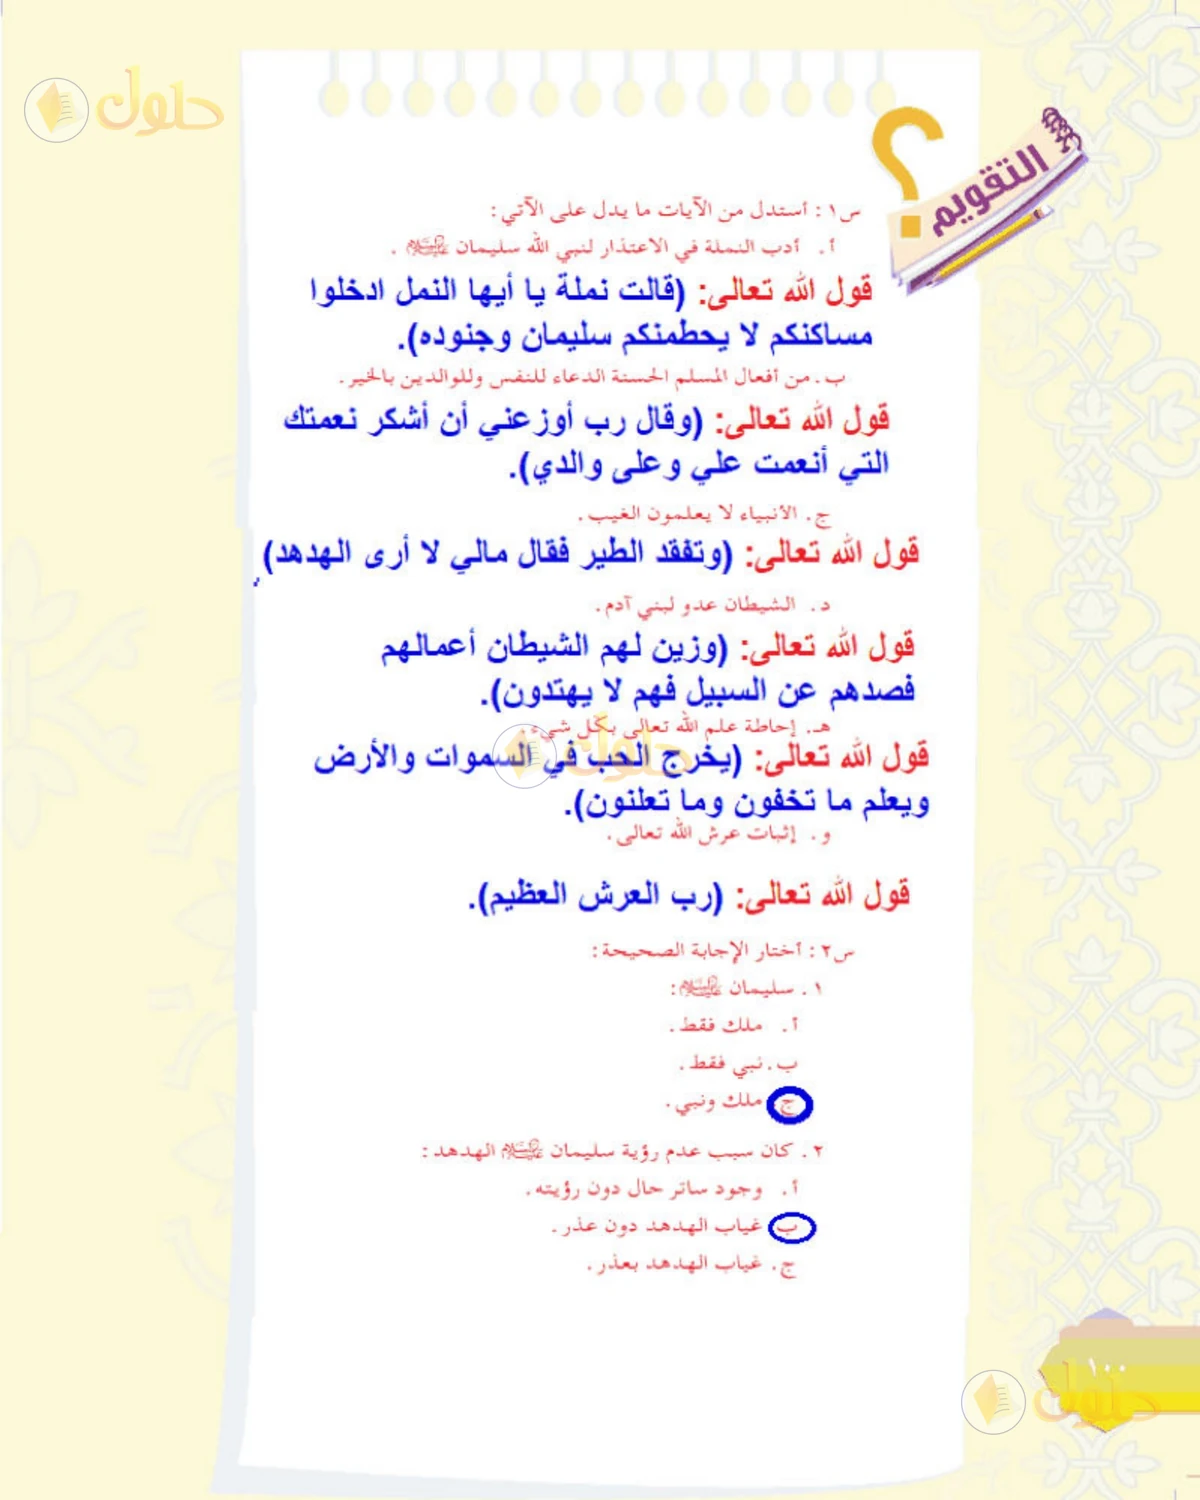 حلول
التقويم
؟
س١ : أستدل من الآيات ما يدل على الآتي:
أ. أدب النملة في الاعتذار لنبي الله سليمان عليه السلام .
قول الله تعالى: (قالت نملة يا أيها النمل ادخلوا
مساكنكم لا يحطمنكم سليمان وجنوده).
ب. من أفعال المسلم الحسنة الدعاء للنفس وللوالدين بالخير.
قول الله تعالى: (وقال رب أوزعني أن أشكر نعمتك
التي أنعمت علي وعلى والدي).
ج. الأنبياء لا يعلمون الغيب.
قول الله تعالى: (وتفقد الطير فقال مالي لا أرى الهدهد)
د. الشيطان عدو لبني آدم.
قول الله تعالى: (وزين لهم الشيطان أعمالهم
فصدهم عن السبيل فهم لا يهتدون).
هـ. إحاطة علم الله تعالى بكل شيء.
حلول
قول الله تعالى: (يخرج الحب في السموات والأرض
ويعلم ما تخفون وما تعلنون).
و. إثبات عرش الله تعالى.
قول الله تعالى: (رب العرش العظيم).
س٢ : أختار الإجابة الصحيحة:
١. سليمان عليه السلام:
أ. ملك فقط.
ب. نبي فقط.
ج. ملك ونبي.
٢. كان سبب عدم رؤية سليمان عليه السلام الهدهد:
أ. وجود ساتر حال دون رؤيته.
ب غياب الهدهد دون عذر.
ج. غياب الهدهد بعذر.
١٠٠
حلول